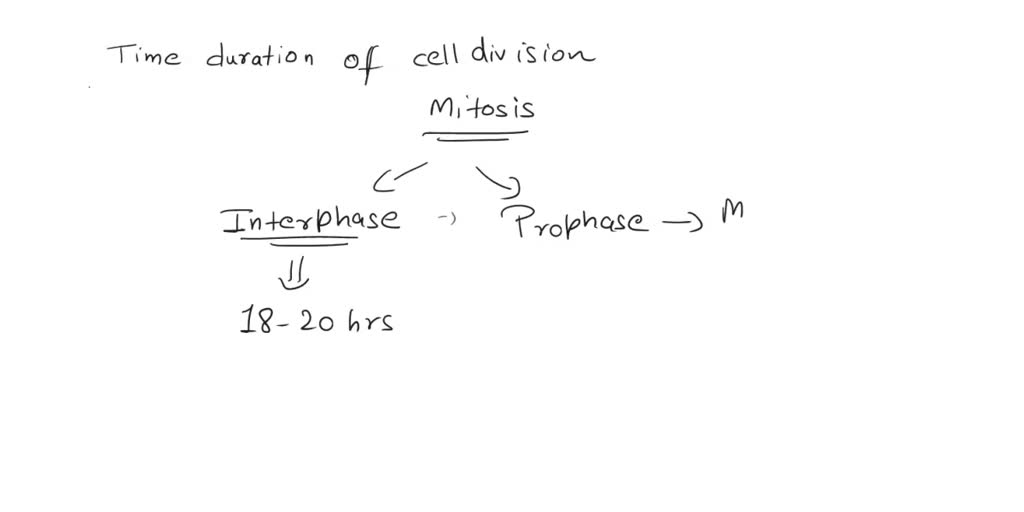 Time duration of cell division
Mitosis
Interphase → Prophase → M
18-20 hrs